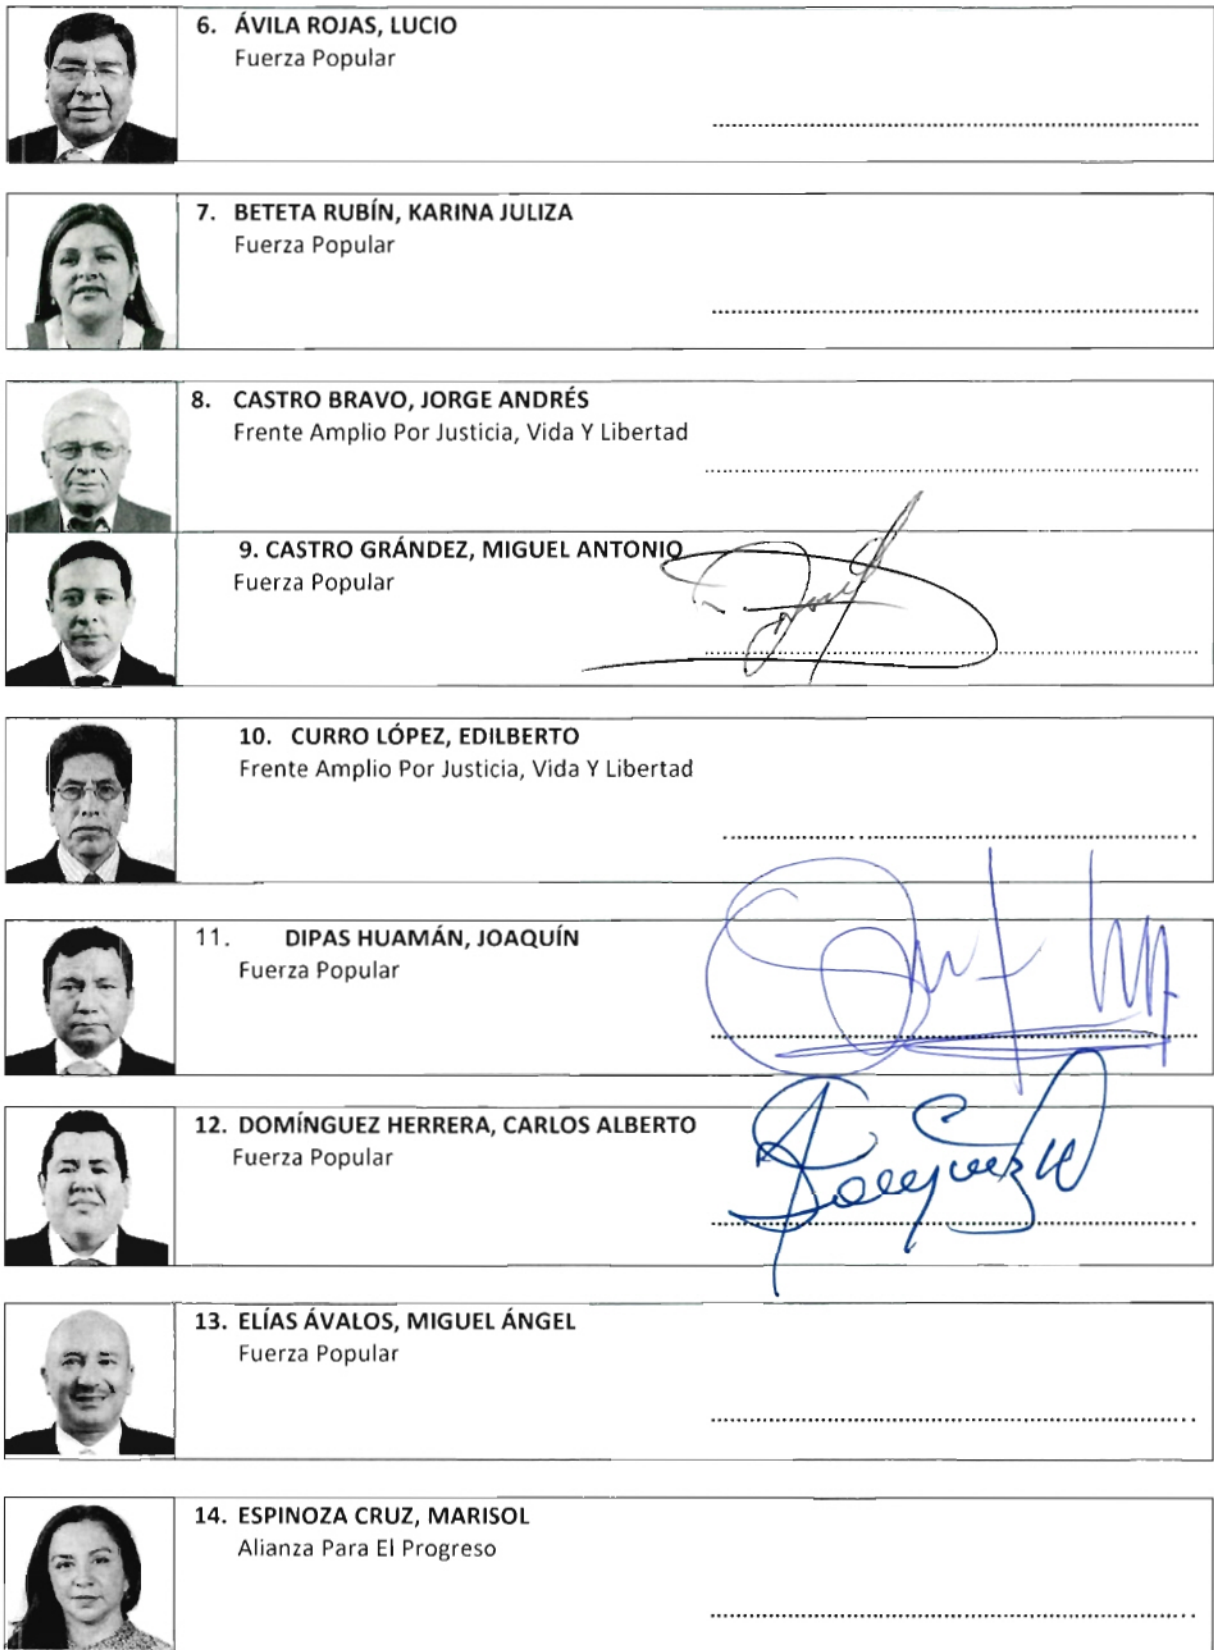 6. ÁVILA ROJAS, LUCIO
Fuerza Popular
7. BETETA RUBÍN, KARINA JULIZA
Fuerza Popular
8. CASTRO BRAVO, JORGE ANDRÉS
Frente Amplio Por Justicia, Vida Y Libertad
9. CASTRO GRÁNDEZ, MIGUEL ANTONIO
Fuerza Popular
10. CURRO LÓPEZ, EDILBERTO
Frente Amplio Por Justicia, Vida Y Libertad
11. DIPAS HUAMÁN, JOAQUÍN
Fuerza Popular
12. DOMÍNGUEZ HERRERA, CARLOS ALBERTO
Fuerza Popular
13. ELÍAS ÁVALOS, MIGUEL ÁNGEL
Fuerza Popular
14. ESPINOZA CRUZ, MARISOL
Alianza Para El Progreso